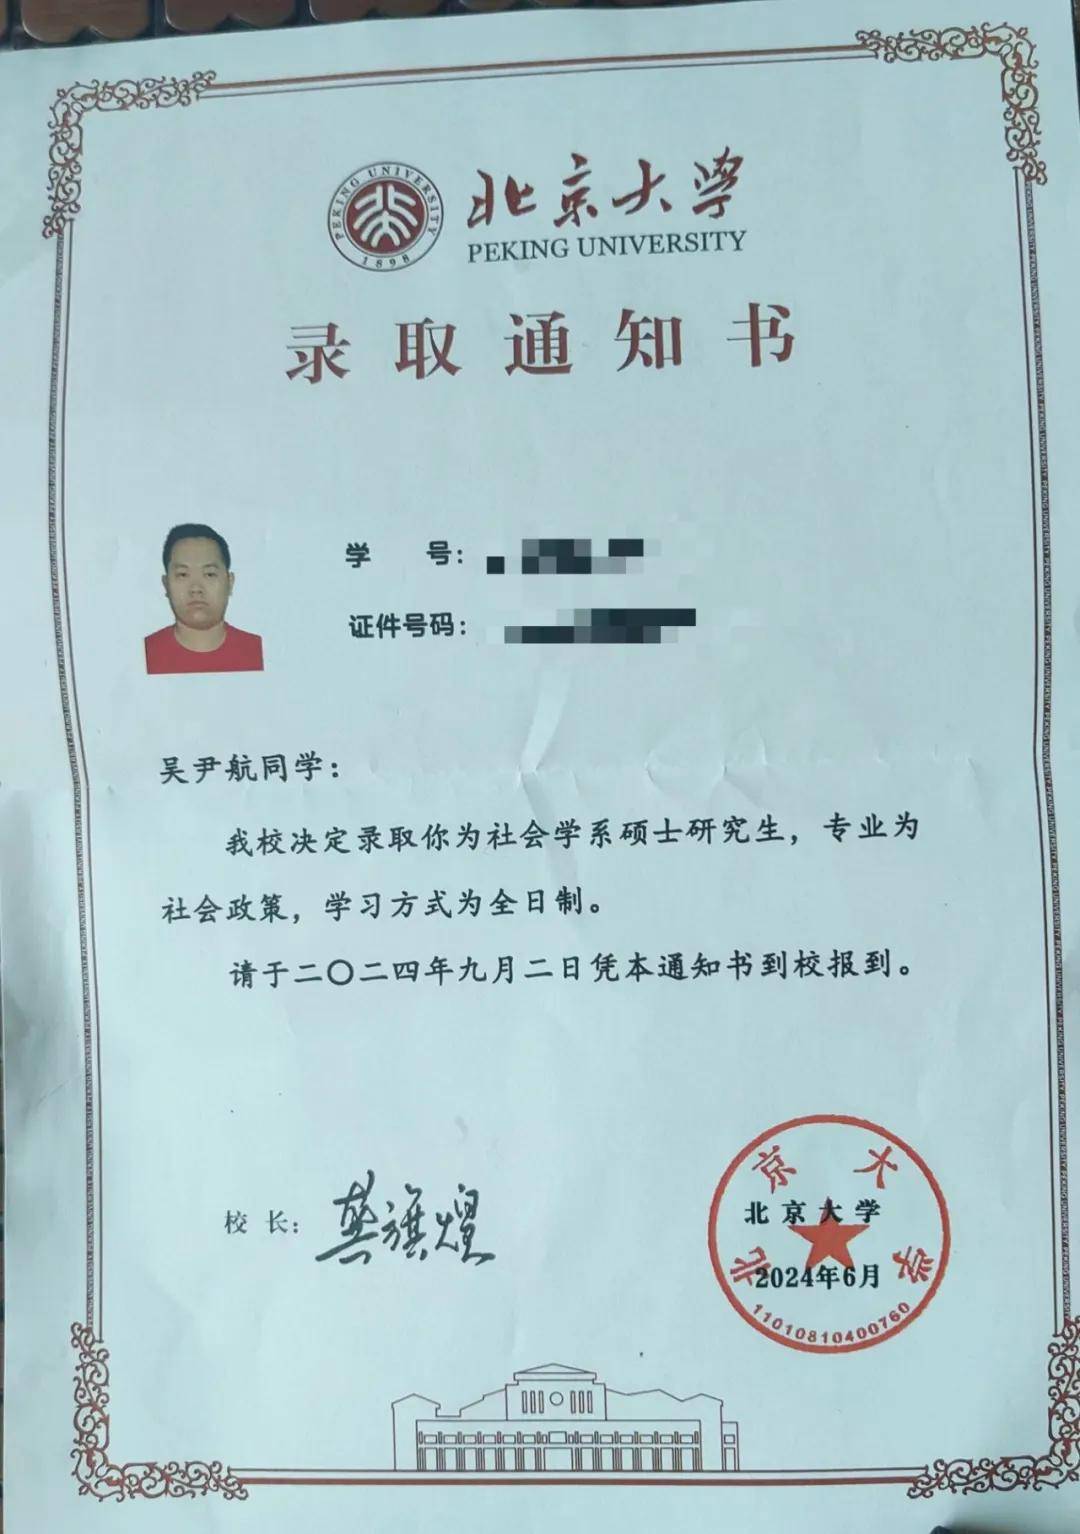 PEKING UNIVERSITY
1898
北京大学
PEKING UNIVERSITY
录取通知书
学 号：
证件号码：
吴尹航同学：
我校决定录取你为社会学系硕士研究生，专业为
社会政策，学习方式为全日制。
请于二〇二四年九月二日凭本通知书到校报到。
校 长：
龚旗煌
北京大学
北京大学
2024年6月
11010810400760